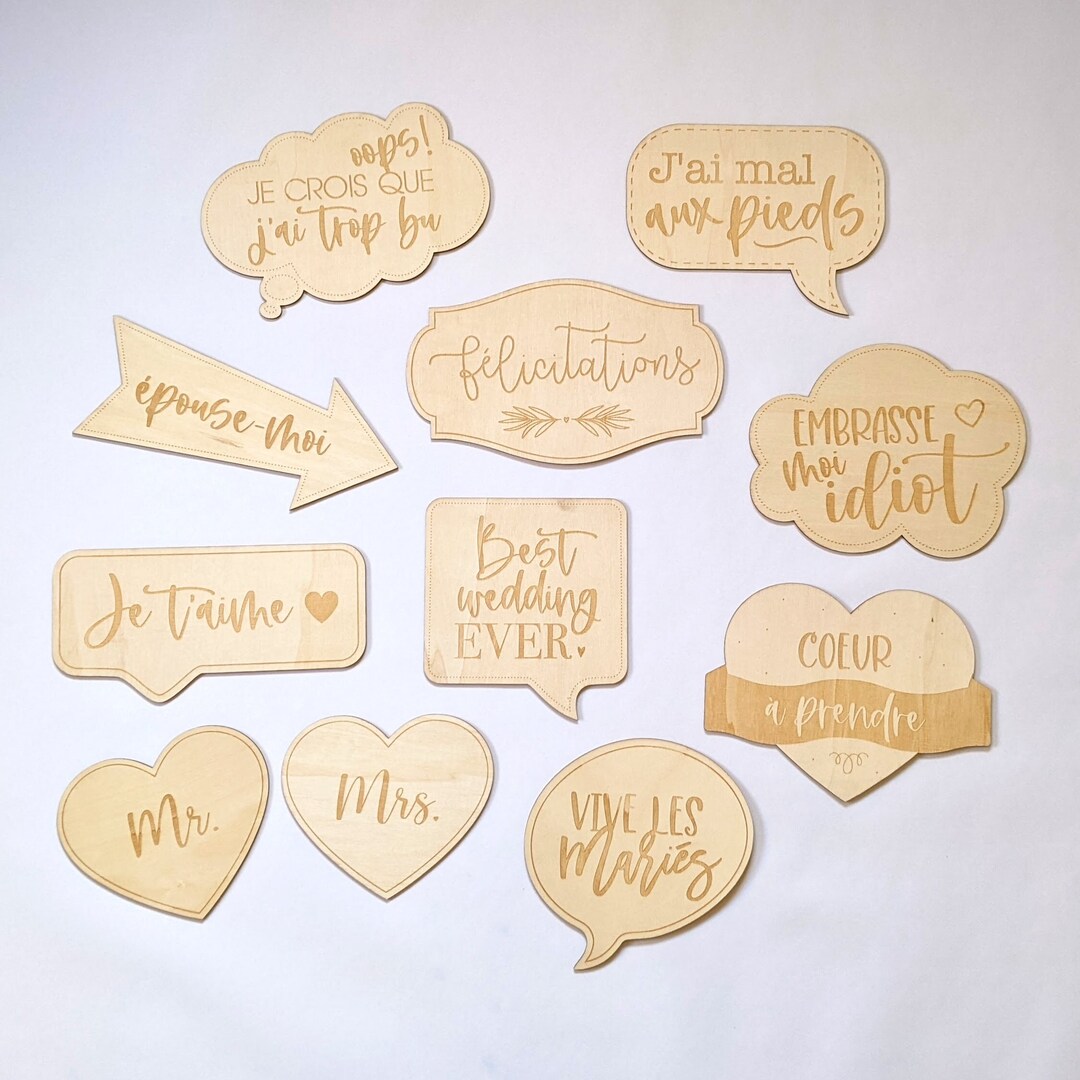 oops!
JE CROIS QUE
j'ai trop bu
J'ai mal
aux pieds
félicitations
épouse-moi
EMBRASSE
moi
idiot
Je t'aime
Best
wedding
EVER.
COEUR
à prendre
Mr.
Mrs.
VIVE LES
Mariés